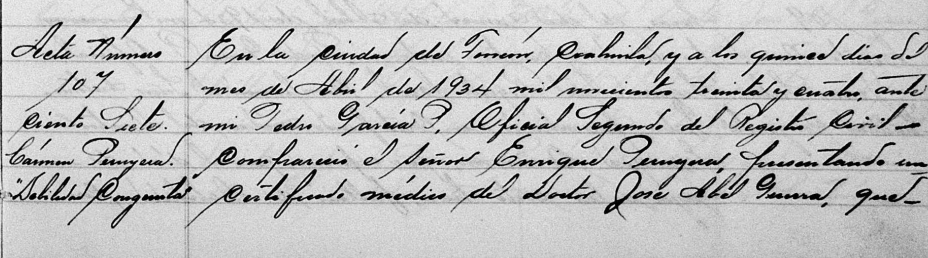 Acta Número
107
ciento Siete.
Cármen Pereyera.
"Debilidad Congenita"
En la ciudad de Torreón, Coahuila, y a los quince dias del
mes de Abril de 1934 mil novecientos treinta y cuatro, ante
mi Pedro García P, Oficial Segundo del Registro Civil
compareció el señor Enrique Pereyera, presentando un
certificado médico del Doctor José Abel Guerra, que